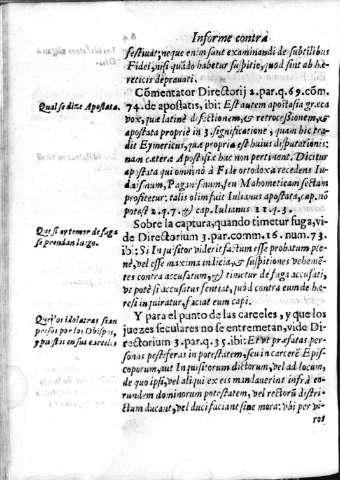 Informe contra
festiuat; neque enim sunt examinandi de subtilibus
Fidei, nisi quãdo habetur suspitio, quod sint ab hæ-
reticis deprauati.
Cõmentator Directorij 2. par. q. 69. com.
Qual se dize Apostata.
74. de apostatis, ibi: Est autem apostasia græca
vox, quæ latinè defectionem, & retrocessionem, &
apostata propriè in 3. significatione, quam hic tra-
dit Eymericus, quæ propria est huius disputationis:
nam cætera Apostasiæ hac non pertinent. Dicitur
apostata qui omninò à Fide ortodoxa recedens Iu-
daismum, Paganismum, seu Mahometicam sectam
profitetur: talis olim fuit Iulianus apostata, cap. nõ
potest 2. q. 7. & cap. Iulianus 11. q. 3.
Sobre la captura, quando timetur fuga, vi-
Que si ay temor de fuga
se prendan luego.
de Directorium 3. par. comm. 16. num. 73.
ibi: Si Inquisitor viderit factum esse probatum ple-
nè, vel esse maxima indicia, & suspitiones vehemẽ-
tes contra accusatum, & timetur de fuga accusati,
vt potè si accusatus sentiat, quod contra eum de hæ-
resi inquiratur, faciat eum capi.
Que los idolatras sean
presos por los Obispos,
y puestos en sus carceles
Y para el punto de las carceles, y que los
juezes seculares no se entremetan, vide Di-
rectorium 3. par. q. 35. ibi: Et vt præfatas per-
sonas pestiferas in potestatem, seu in carcerẽ Epis-
coporum, aut Inquisitorum dictorum, vel ad locum,
de quo ipsi, vel aliqui ex eis mandauerint infrà eo-
rundem dominorum potestatem, vel rectorũ distri-
ctum ducant, vel duci faciant sine mora: vbi per vi-
ros